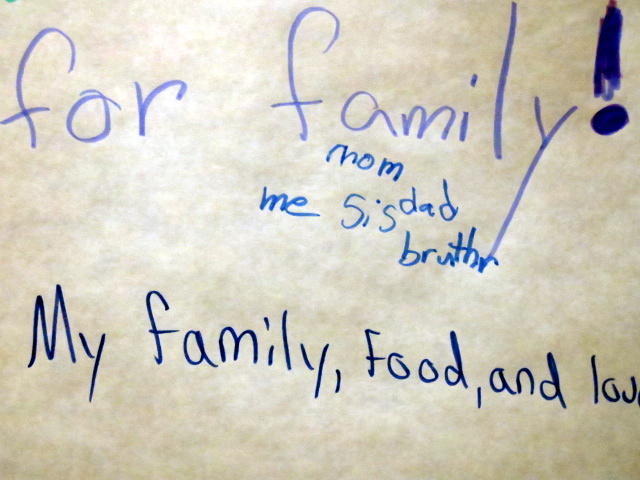 for family!
mom
me sis dad
bruthr
My family, Food, and